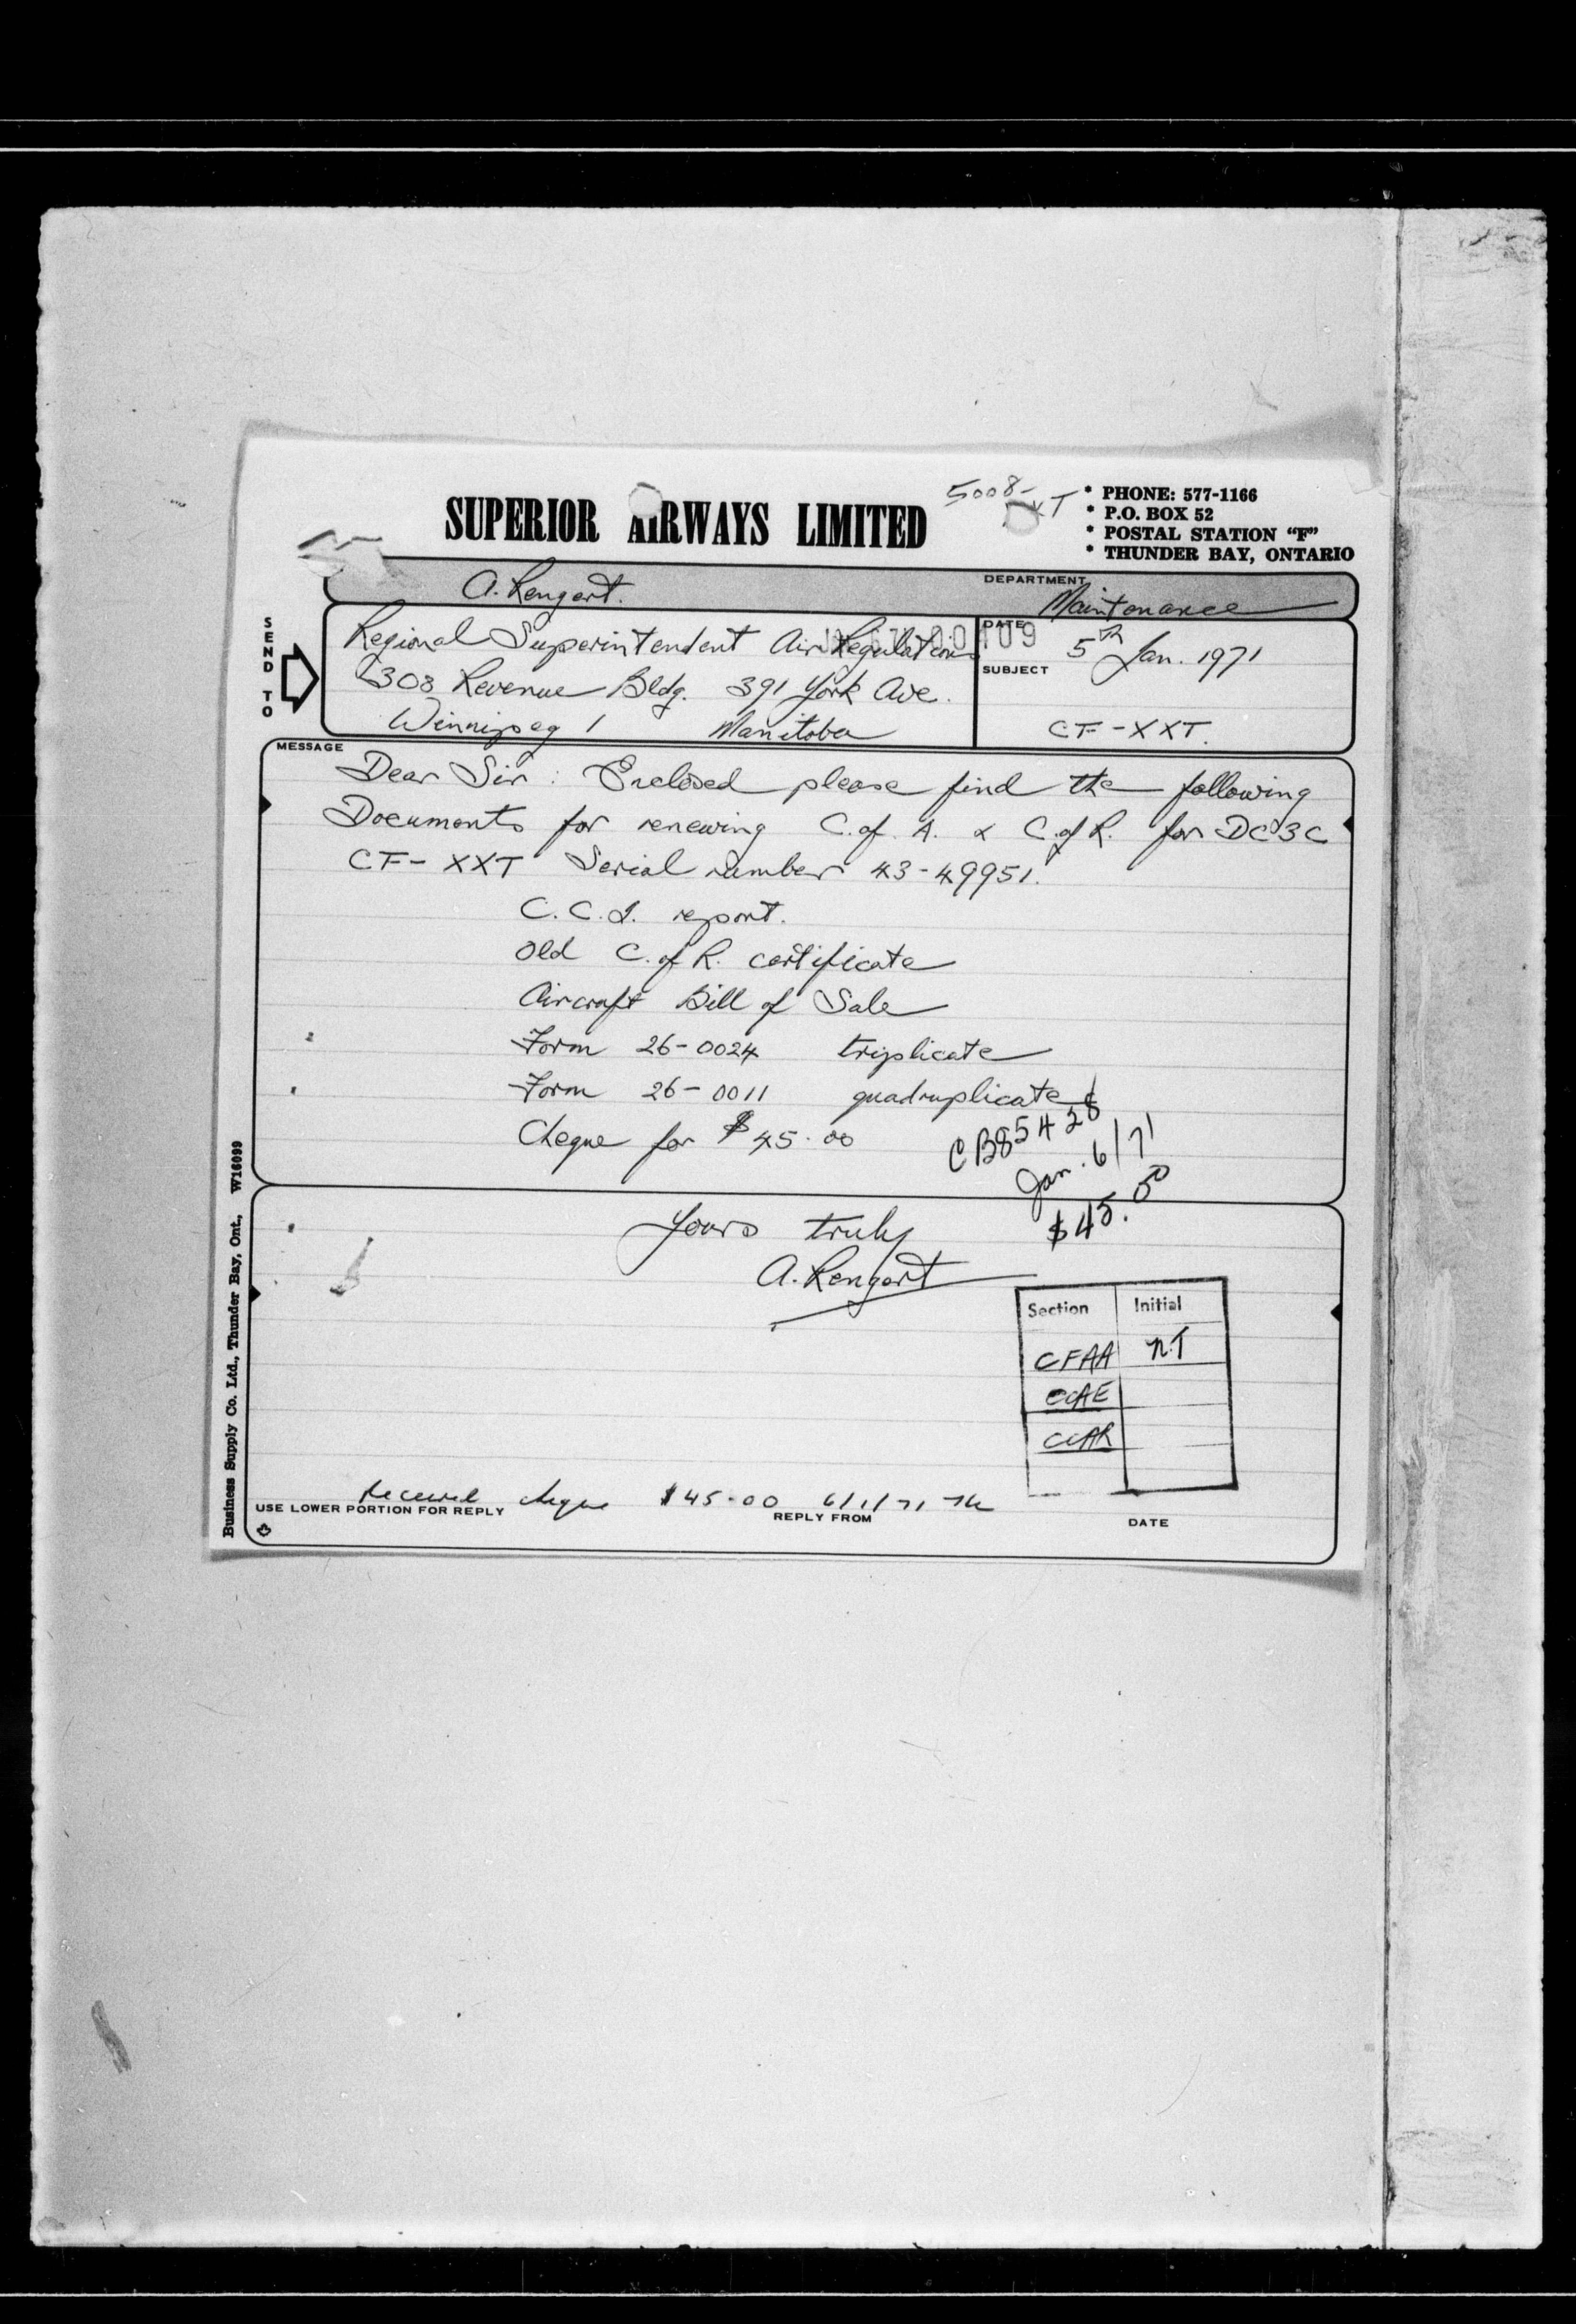 SUPERIOR AIRWAYS LIMITED
5008-
XT
* PHONE: 577-1166
* P.O. BOX 52
* POSTAL STATION “F”
* THUNDER BAY, ONTARIO
A. Rengert.
DEPARTMENT
Maintenance
SEND TO
Regional Superintendent Air Regulations
308 Revenue Bldg. 391 York Ave.
Winnipeg 1 Manitoba
DATE
5th Jan. 1971
SUBJECT
CF-XXT.
MESSAGE
Dear Sir: Enclosed please find the following
Documents for renewing C. of. A. & C. of R. for DC3C
CF-XXT Serial number 43-49951.
C.C.I. report.
Old C. of R. certificate
Aircraft Bill of Sale
Form 26-0024 triplicate
Form 26-0011 quadruplicate
Cheque for $45.00
CB85428
Jan. 6/71
$45.00
Yours truly
A. Rengert
Section Initial
CFAA N.T
CCAE
CCAR
Received cheque $45.00 6/1/71
USE LOWER PORTION FOR REPLY
REPLY FROM
DATE
Business Supply Co. Ltd., Thunder Bay, Ont., W16099